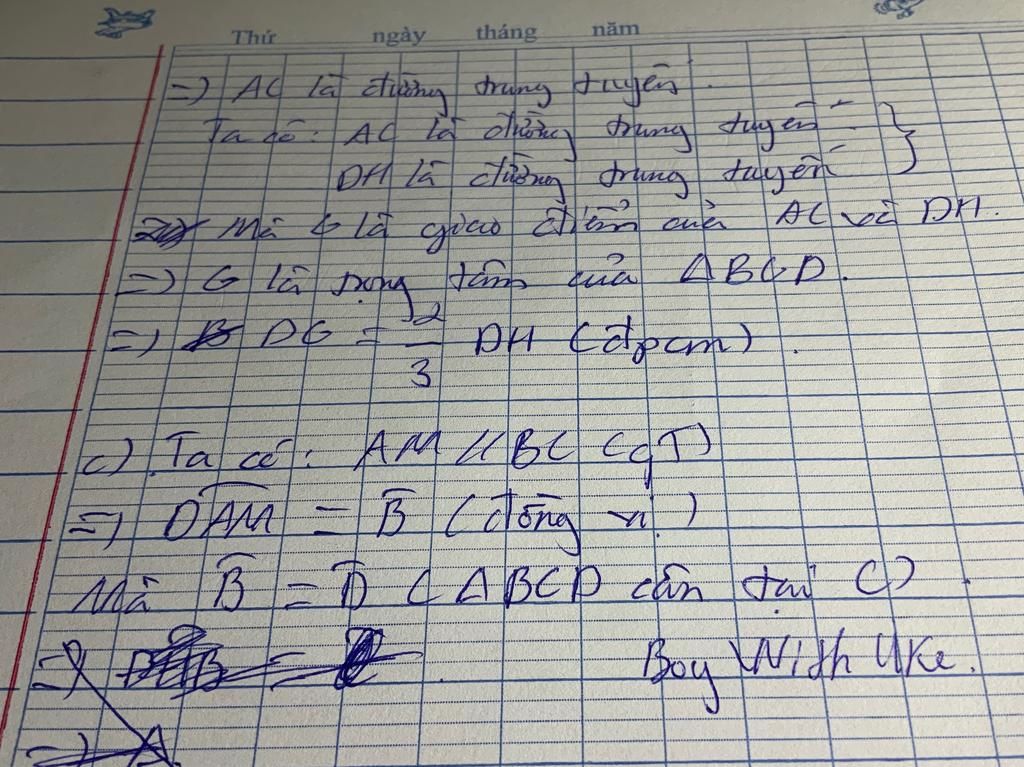 Thứ ngày tháng năm
=> AC là đường trung tuyến.
Ta có: AC là đường trung tuyến
DH là đường trung tuyến
Mà G là giao điểm của AC và DH.
=> G là trọng tâm của ΔBCD.
=> DG = 2/3 DH (đpcm).
c) Ta có: AM // BC (gT)
=> DAM = B (đồng vị)
Mà B = D (ΔBCD cân tại C)
=>
Boy With Uke.
=>